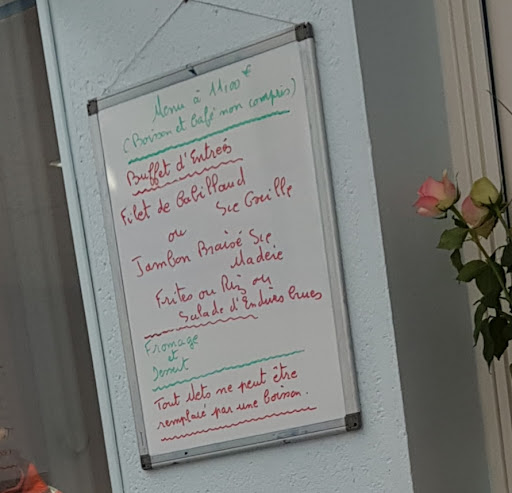 Menu à 11,00 €
(Boisson et Café non compris)
Buffet d'Entreés
Filet de Cabillaud
Sce Groseille
ou
Jambon Braisé Sce
Madère
Frites ou Riz ou
Salade d'Endives Crues
Fromage
et
Dessert
Tout Mets ne peut être
remplacé par une boisson.